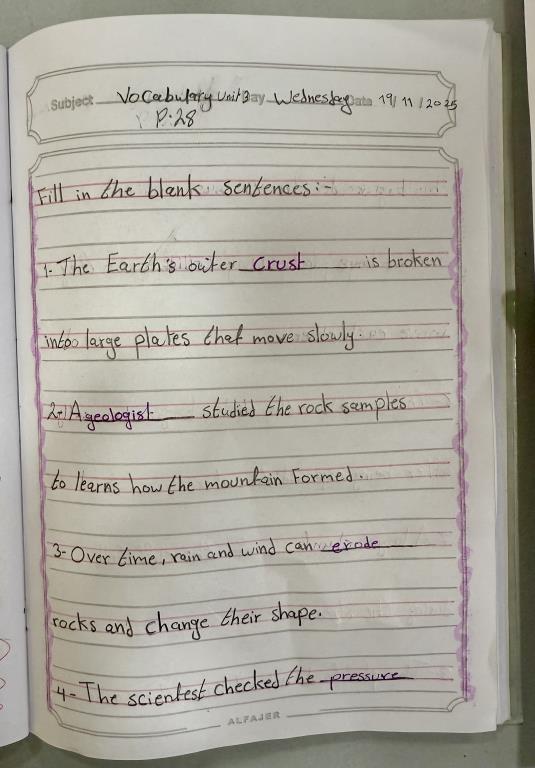 Subject Vocabulary Unit 3 Day Wednesday Date 19/11/2025
P:28
Fill in the blank sentences:-
1- The Earth's outer crust is broken
into large plates that move slowly.
2- A geologist studied the rock samples
to learns how the mountain Formed.
3- Over time, rain and wind can erode
rocks and change their shape.
4- The scientest checked the pressure
ALFAJER